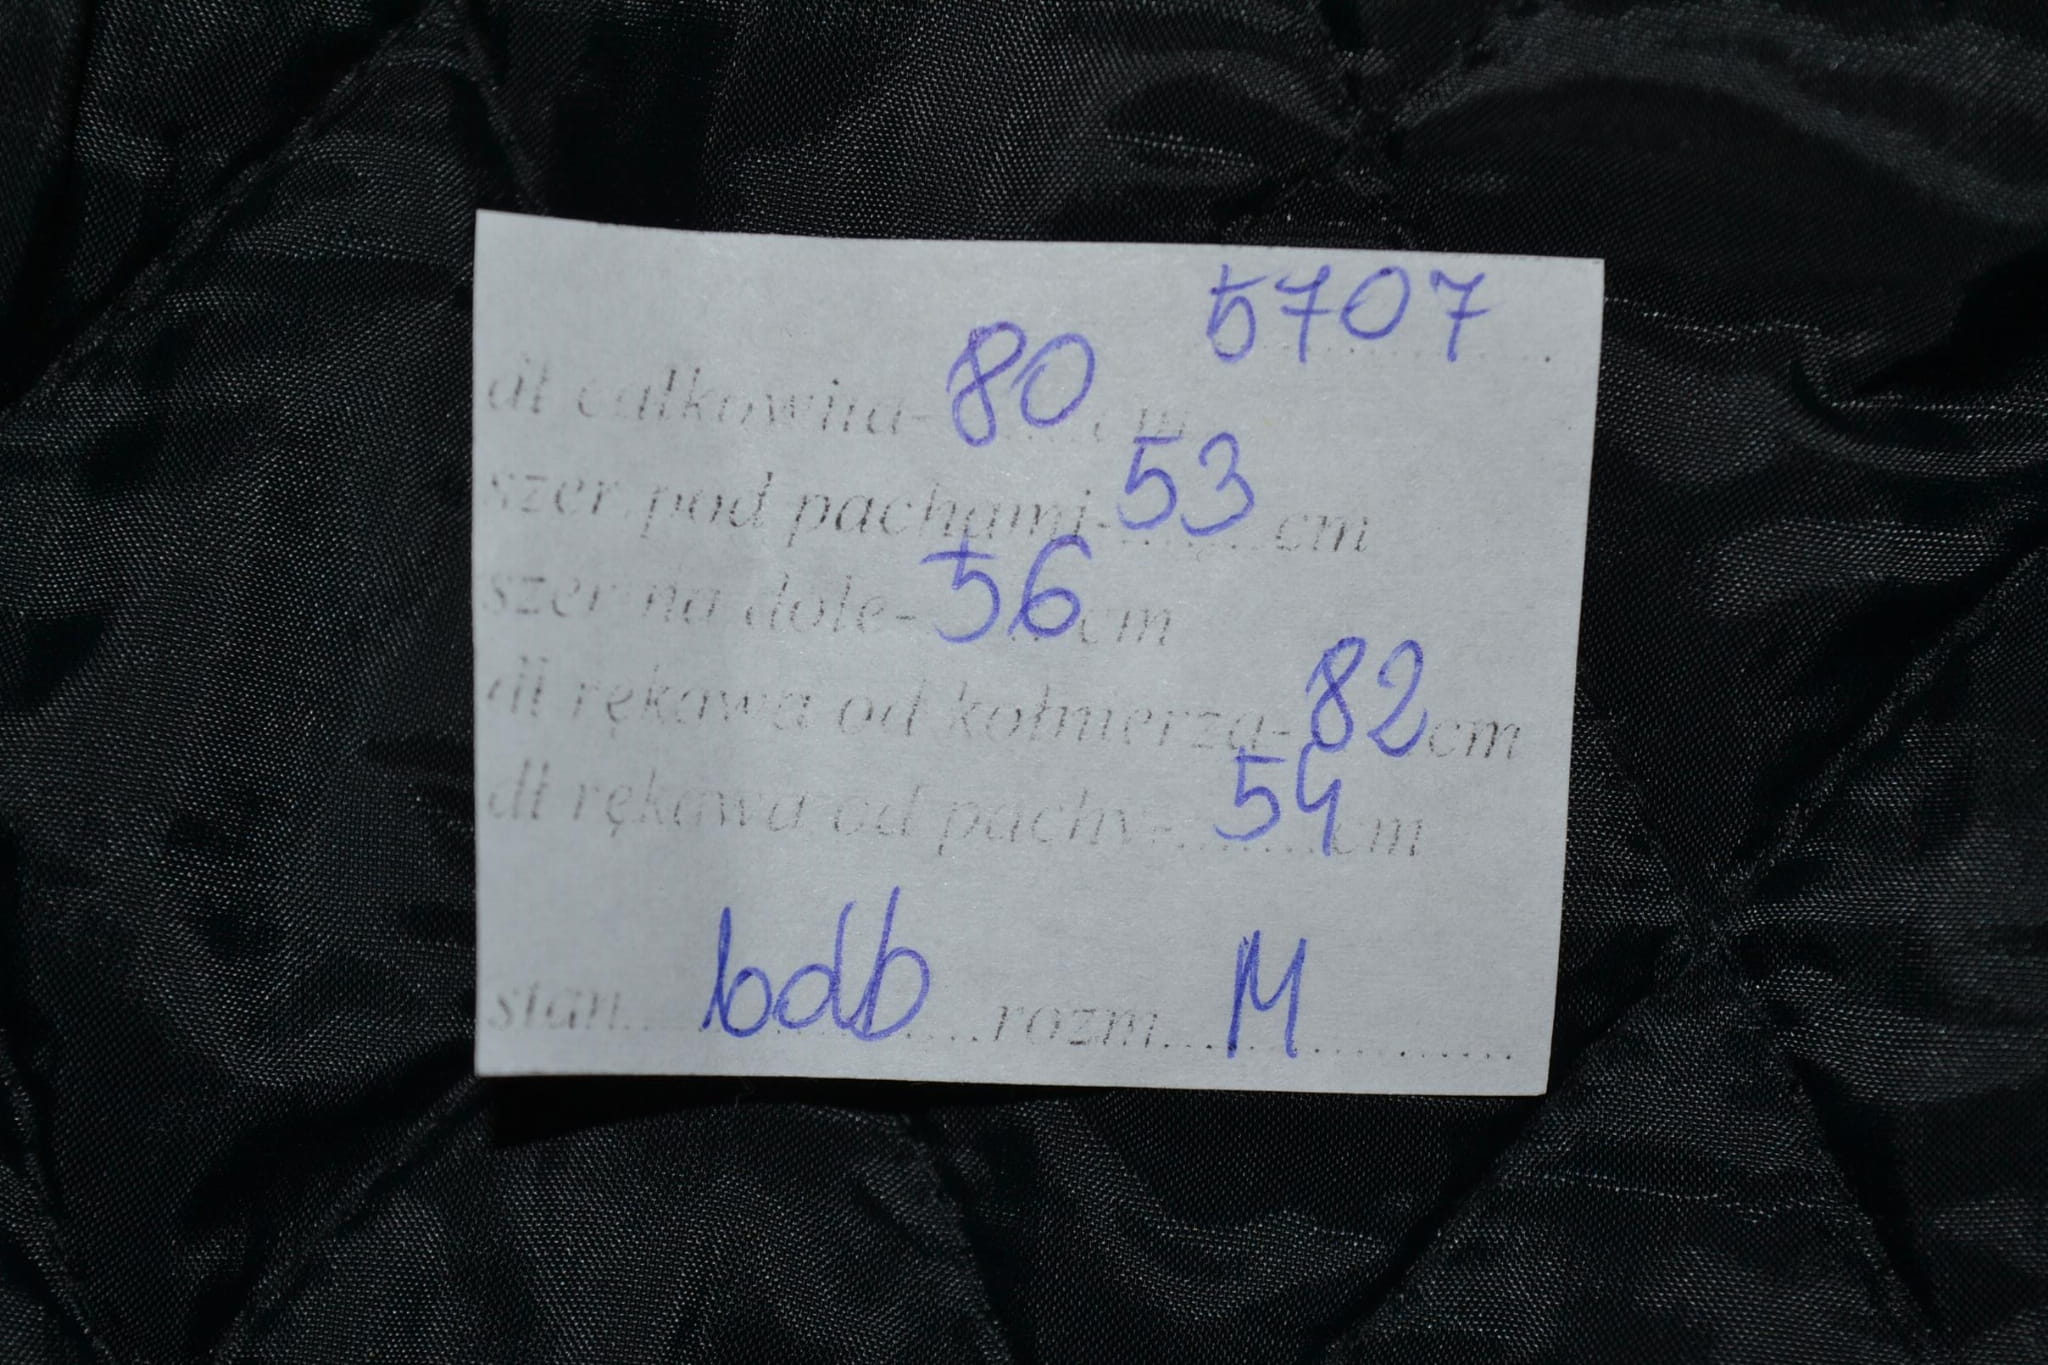 5707
dł całkowita-80 cm
szer.pod pachami-53 cm
szer na dole-56 cm
dł rękawa od kołnierza-82 cm
dł rękawa od pachy-54 cm
stan bdb rozm M